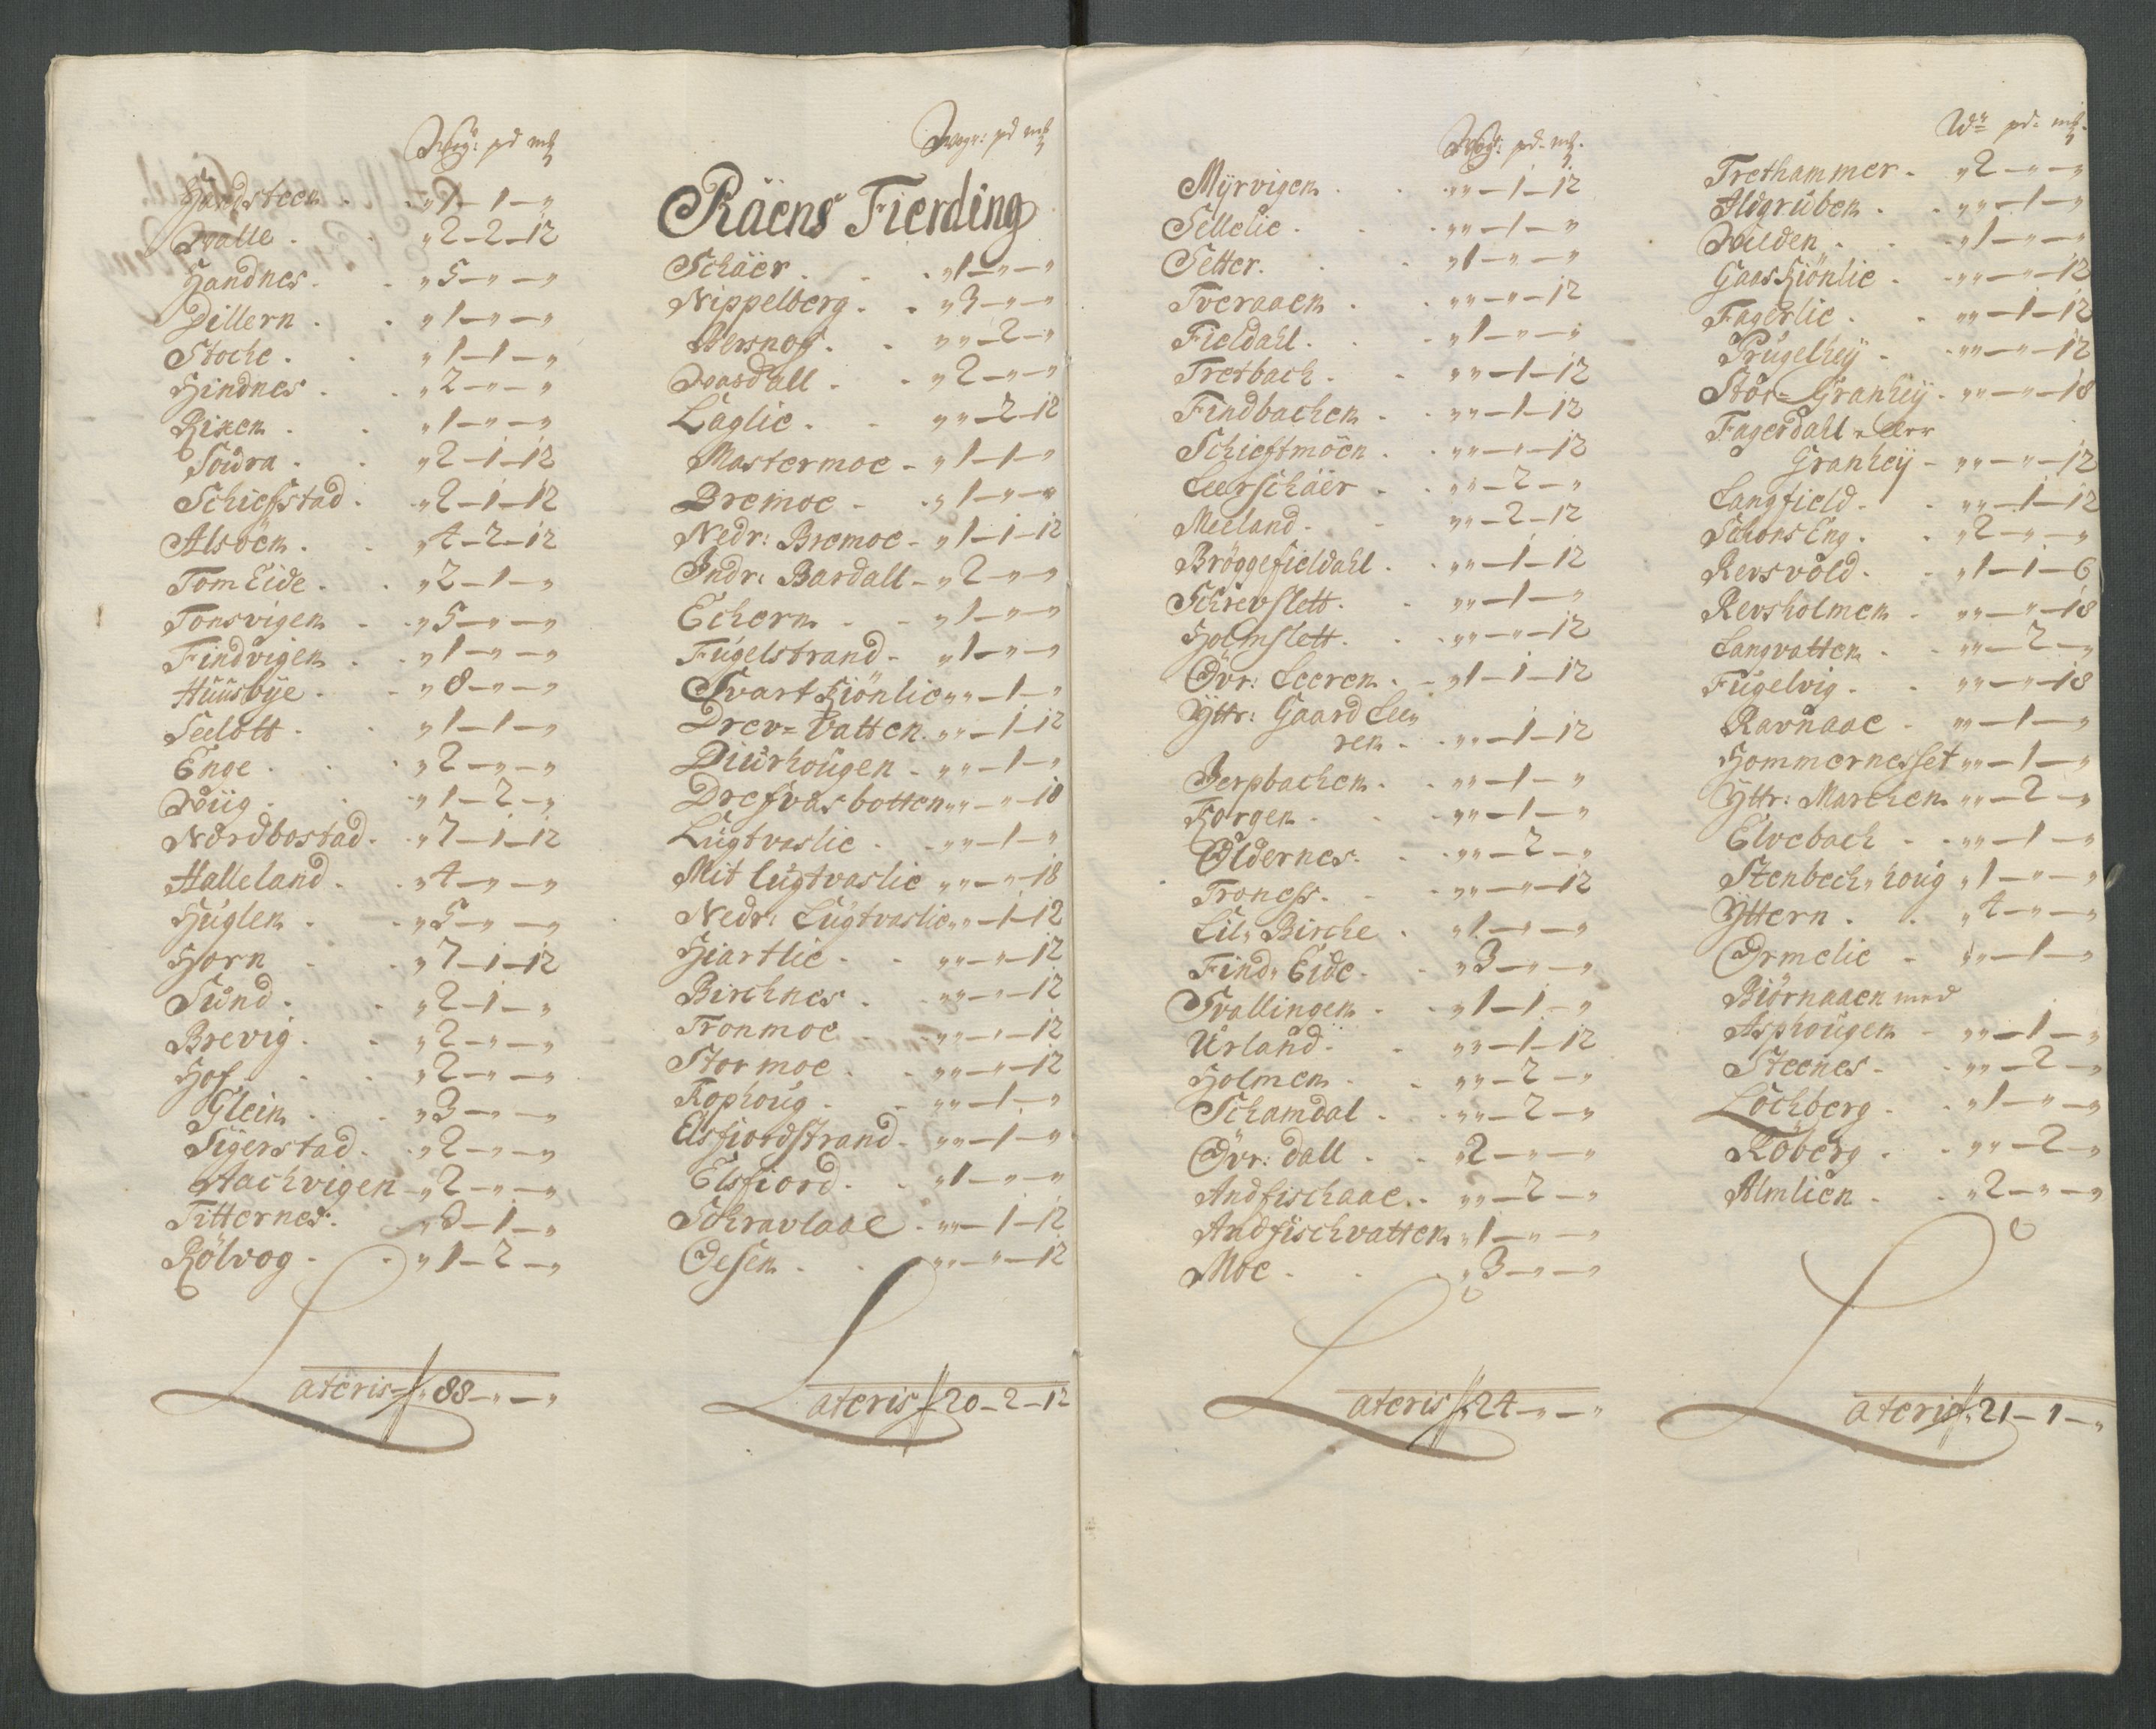 Wog: pd mk
Handsteen . . „ 1 — 1 — „
Walle . . „ 2 — 2 — 12
Handnes . . „ 5 — „ — „
Dillern . . „ 1 — „ — „
Stoche . . „ 1 — 1 — „
Hindnes . . „ 2 — „ — „
Rixen . . „ 1 — „ — „
Söudra . . „ 2 — 1 — 12
Schiefstad . „ 2 — 1 — 12
Alsöen . . „ 4 — 2 — 12
Tom Eide . . „ 2 — 1 — „
Tonsvigen . „ 5 — „ — „
Findvigen . . „ 1 — „ — „
Huusbÿe . . „ 8 — „ — „
Seelott . . „ 1 — 1 — „
Enge . . „ 2 — „ — „
Wiig . . „ 1 — 2 — „
Nordbostad . „ 7 — 1 — 12
Halleland . . „ 4 — „ — „
Huglen . . „ 5 — „ — „
Horn . . „ 7 — 1 — 12
Sund . . „ 2 — 1 — „
Brevig . . „ 2 — „ — „
Hof . . „ 2 — „ — „
Glein . . „ 3 — „ — „
Sigerstad . . „ 2 — „ — „
Aachvigen — „ 2 — „ — „
Titternes . „ 3 — 1 — „
Rölvog . . „ 1 — 2 — „
Lateris „ 88 — „ — „
Wogr: pd mk
Räens Fierding
Schäer . . „ 1 — „ — „
Nippelberg . . „ 3 — „ — „
Bersnof . . „ „ — 2 — „
Wasdall . . „ 2 — „ — „
Laglie . . „ „ — 2 — 12
Mastermoe — „ 1 — 1 — „
Bremoe . . „ 1 — „ — „
Nedr: Bremoe — „ 1 — 1 — 12
Indr: Bardall — „ 2 — „ — „
Echern . . „ 1 — „ — „
Fugelstrand — „ 1 — „ — „
Svart Kiönlie „ „ — 1 — „
Drev = Vatten „ „ — 1 — 12
Diurhougen — „ „ — 1 — „
Drefvasbotten „ „ — „ — 18
Lugtvaslie . „ „ — 1 — „
Mit lugtvaslie „ „ — „ — 18
Nedr: Lugtvaslie „ „ — 1 — 12
Hiartlie . . „ „ — „ — 12
Birchnes . . „ „ — „ — 12
Tronmoe . . „ „ — „ — 12
Stormoe . . „ „ — „ — 12
Kophoug . . „ „ — 1 — „
Elsfiordstrand . „ „ — 1 — „
Elsfiord . . „ 1 — „ — „
Schravlaae . „ „ — 1 — 12
Oesen . . „ „ — „ — 12
Lateris 20 — 2 — 12
Wogr: pd. mk.
Mÿrvigen . . „ „ — 1 — 12
Sellelie . . „ „ — 1 — „
Setter . . „ 1 — „ — „
Tveraaen . . „ „ — „ — 12
Fieldahl . . „ 1 — „ — „
Tretbach . . „ „ — 1 — 12
Findbachen . . „ „ — 1 — 12
Schieftmöen . . „ „ — „ — 12
Leerschäer . . „ „ — 2 — „
Meeland . . „ „ — 2 — 12
Bröggefieldahl . „ „ — 1 — 12
Schrevslett . . „ „ — 1 — „
Holmslett . . „ „ — „ — 12
Övr: Leeren . . „ 1 — 1 — 12
Yttr: Gaard Lee„
ren . . „ „ — 1 — 12
Jerpbachen . . „ „ — 1 — „
Korgen . . „ „ — 1 — „
Oldernes . . „ „ — 2 — „
Troness . . „ „ — „ — 12
Lil„ Birche . „ 1 — „ — „
Find„ Eide . . „ 3 — „ — „
Svallingen . . „ 1 — 1 — „
Urland . . „ „ — 1 — 12
Holmen . . „ „ — 2 — „
Schamdal . . „ „ — 2 — „
Övr: dall . . „ 2 — „ — „
Andfischaae . . „ „ — 2 — „
Andfischvatten „ 1 — „ — „
Moe . . „ 3 — „ — „
Lateris „ 24 — „ — „
Wr pd: mk.
Trethammer . „ 2 — „ — „
Ildgruben . . „ „ — 1 — „
Wilden . . „ 1 — „ — „
Gaas Kiönlie . „ „ — „ — 12
Fagerlie . . „ „ — 1 — 12
Prugelheÿ . . „ „ — „ — 12
Stor = Granheÿ . „ „ — „ — 18
Fagerdahl eller
Granheÿ — „ „ — „ — 12
Langfield . . „ „ — 1 — 12
Schons Eng . . „ 2 — „ — „
Revsvold . . „ 1 — 1 — 6
Revsholmen . „ „ — „ — 18
Langvatten . . „ „ — 2 — „
Fugelvig . . „ „ — „ — 18
Ravnaae . . „ „ — 1 — „
Hommernesset „ „ — 1 — „
Yttr: Marchen „ „ — 2 — „
Elvebach . . „ „ — 1 — „
Stenbech„ houg „ 1 — „ — „
Yttern . . „ 4 — „ — „
Ormelie . „ „ — 1 — „
Biörnaaen med
Asphougen . „ „ — 1 — „
Steenes . . „ „ — 2 — „
Lochberg . . „ 1 — „ — „
Röberg . . „ „ — 2 — „
Almlien . . „ 2 — „ — „
Lateris „ 21 — 1 — „